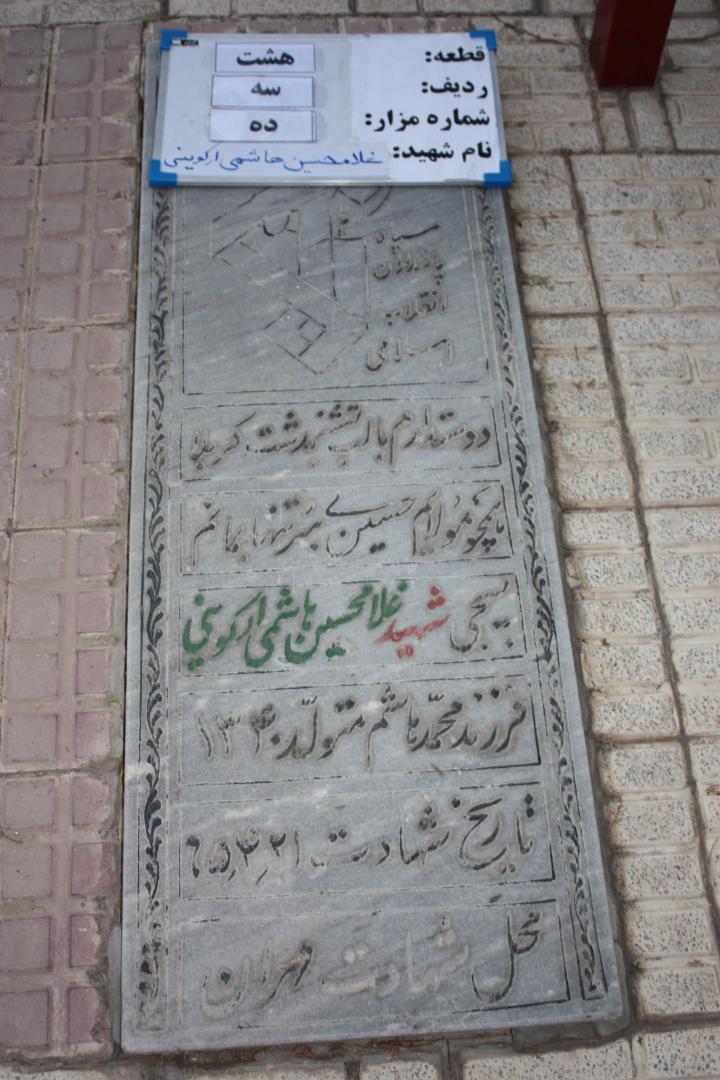 قطعه: هشت
ردیف: سه
شماره مزار: ده
نام شهید: غلامحسین هاشمی ارکوینی
سپاه
پاسداران
انقلاب
اسلامی
دوستدارم با لب تشنه بدشت کربلا
همچو مولایم حسین بی سر تنها بمانم
بسیجی شهید غلامحسین هاشمی ارکوینی
فرزند محمدهاشم متولد ۱۳۴۰
تاریخ شهادت ۶۵٫۴٫۲۱
محل شهادت مهران